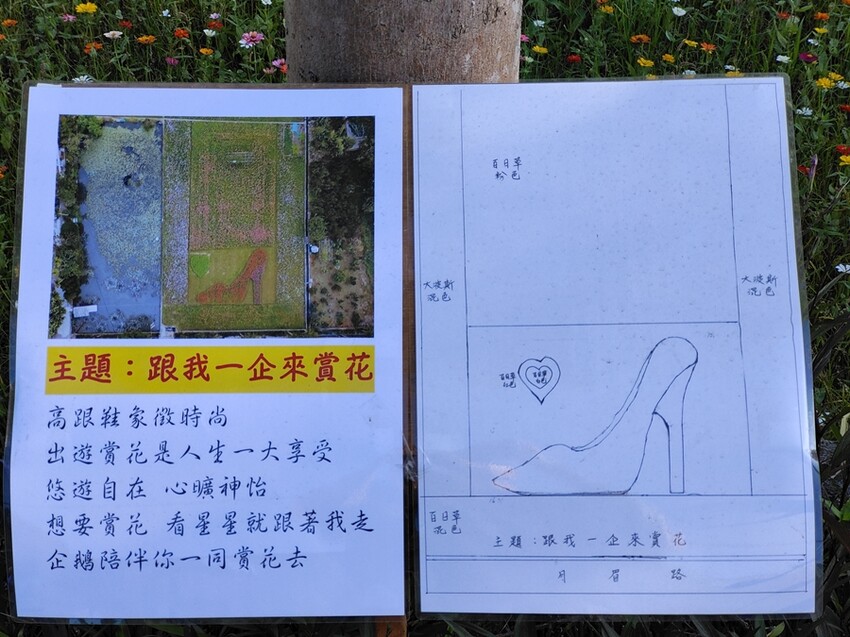 主題：跟我一企來賞花
高跟鞋象徵時尚
出遊賞花是人生一大享受
悠遊自在 心曠神怡
想要賞花 看星星就跟著我走
企鵝陪伴你一同賞花去
百日草
粉色
大波斯
混色
大波斯
混色
百日草
紅色
百日草
白色
百日草
混色
主題：跟我一企來賞花
月眉路